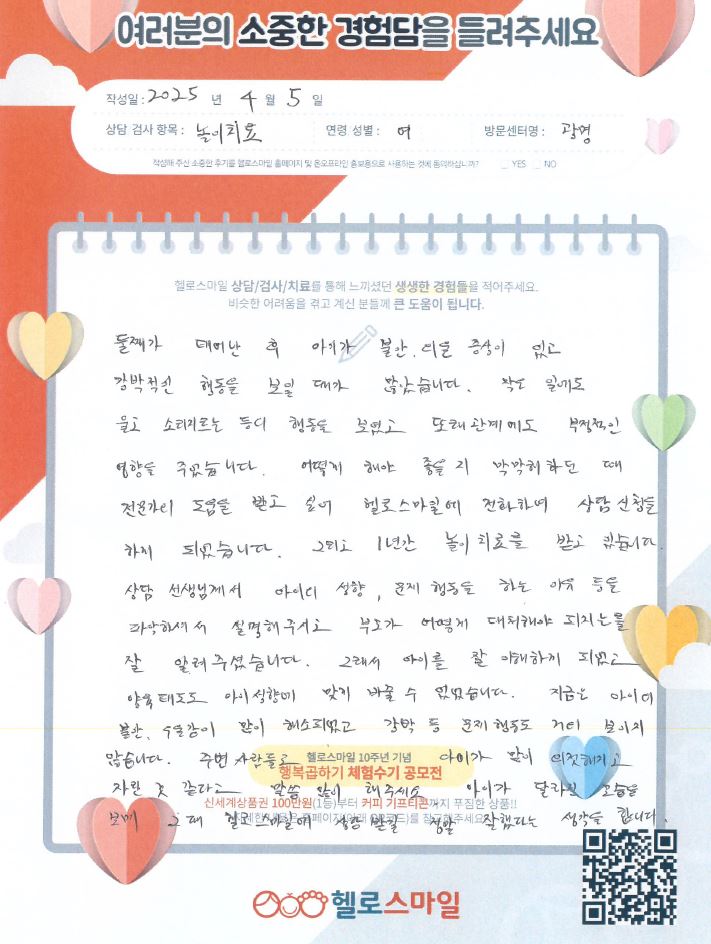 여러분의 소중한 경험담을 들려주세요
작성일 : 2025 년 4 월 5 일
상담 검사 항목 : 놀이치료 연령 성별 : 여 방문센터명 : 광명
작성해 주신 소중한 후기를 헬로스마일 홈페이지 및 온오프라인 홍보용으로 사용하는 것에 동의하십니까? YES NO
헬로스마일 상담/검사/치료를 통해 느끼셨던 생생한 경험들을 적어주세요.
비슷한 어려움을 겪고 계신 분들께 큰 도움이 됩니다.
둘째가 태어난 후 아이가 불안, 우울 증상이 있고
강박적인 행동을 보일 때가 많았습니다. 작은 일에도
울고 소리지르는 등의 행동을 보였고 또래관계에도 부정적인
영향을 주었습니다. 어떻게 해야 좋을지 막막해 하던 때
전문가의 도움을 받고 싶어 헬로스마일에 전화하여 상담신청을
하게 되었습니다. 그리고 1년간 놀이치료를 받고 있습니다.
상담 선생님께서 아이의 성향, 문제 행동을 하는 이유 등을
파악하셔서 설명해주시고 부모가 어떻게 대처해야 되는지를
잘 알려 주셨습니다. 그래서 아이를 잘 이해하게 되었고
양육태도도 아이성향에 맞게 바꿀 수 있었습니다. 지금은 아이의
불안, 우울감이 많이 해소되었고 강박 등 문제 행동도 거의 보이지
않습니다. 주변 사람들도 아이가 많이 의젓해지고
헬로스마일 10주년 기념
행복곱하기 체험수기 공모전
자란 것 같다고 말씀 많이 해주세요. 아이가 달라진 모습을
신세계상품권 100만원(1등)부터 커피 기프티콘까지 푸짐한 상품!!
보며 그때 헬로스마일에 상담 받길 정말 잘했다는 생각을 합니다.
헬로스마일